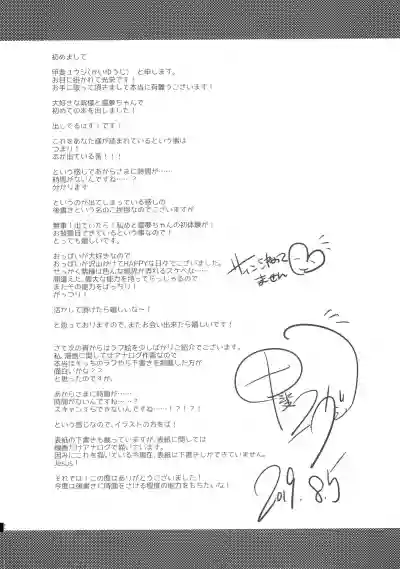 初めまして
甲斐ユウジ(かいゆうじ) と申します。
お目に掛かれて光栄です!
お手に取って頂きまして本当に有難うございます!
大好きな紫様と霊夢ちゃんで
初めての本を出しました!
出してるはず!です!
これをあなた様が読まれているという事は
つまり!
本が出ている筈!!!
という感じであからさまに時間が……
時間がないんですね……?
分かります
というのが出てしまっている感じの
後書きという名のご挨拶なのでございますが
無事!出ていたら!私めと霊夢ちゃんの初体験が!
お披露目できているという事なので!
とっても嬉しいです。
おっぱいが大好きなので
おっぱいが沢山かけてHAPPYな日々でございました。
せっかく紫様は色んな境界が弄れるスケベな…
間違えた、最大な能力を持ってらっしゃるので
またその能力をばっちり!
がっつり!
活かして頂けたら嬉しいな~!
と思っておりますので、またお会い出来たら嬉しいです!
さて次の頁からはラフ絵を少しばかりご紹介でございます。
私、漫画に関してはアナログ作業なので
本当はそっちのラフやら下書きを掲載した方が
面白いかな??
と思ったのですが、
あからさまに時間が…
時間がないんですね…?
スキャンすらできないんですね…!?!?!
という感じなので、イラストの方をば!
表紙の下書きも載っていますが、表紙に関しては
線画だけアナログで描いています。
因みにこれを描いている今現在、表紙は下書きしかできていません。
Jesus!
それでは!この度はありがとうございました!
今度は後書きに時間をさける程度の能力をもちたいな!
サイン決めて
ません
甲斐
2019.8.5